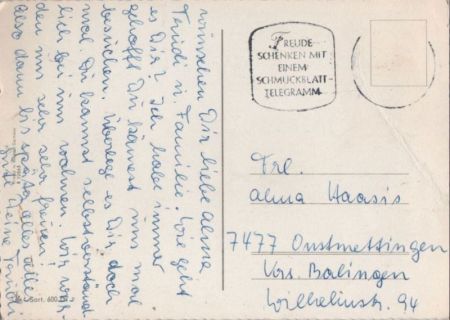 wünschen Dir liebe Alma
Trudi u. Familie. Wie geht
es Dir? Ich habe immer
gehofft Du kämest uns mal
besuchen. Überlege es Dir doch
mal. Du kannst selbstverständ
lich bei uns wohnen. Wir würd
den uns sehr sehr freuen!
Also dann bis später alles
Deine
Sort. 600
FREUDE
SCHENKEN MIT
EINEM
SCHMUCKBLATT-
TELEGRAMM
Frl.
Alma Haasis
7477 Onstmettingen
Krs. Balingen
Wilhelmstr. 94